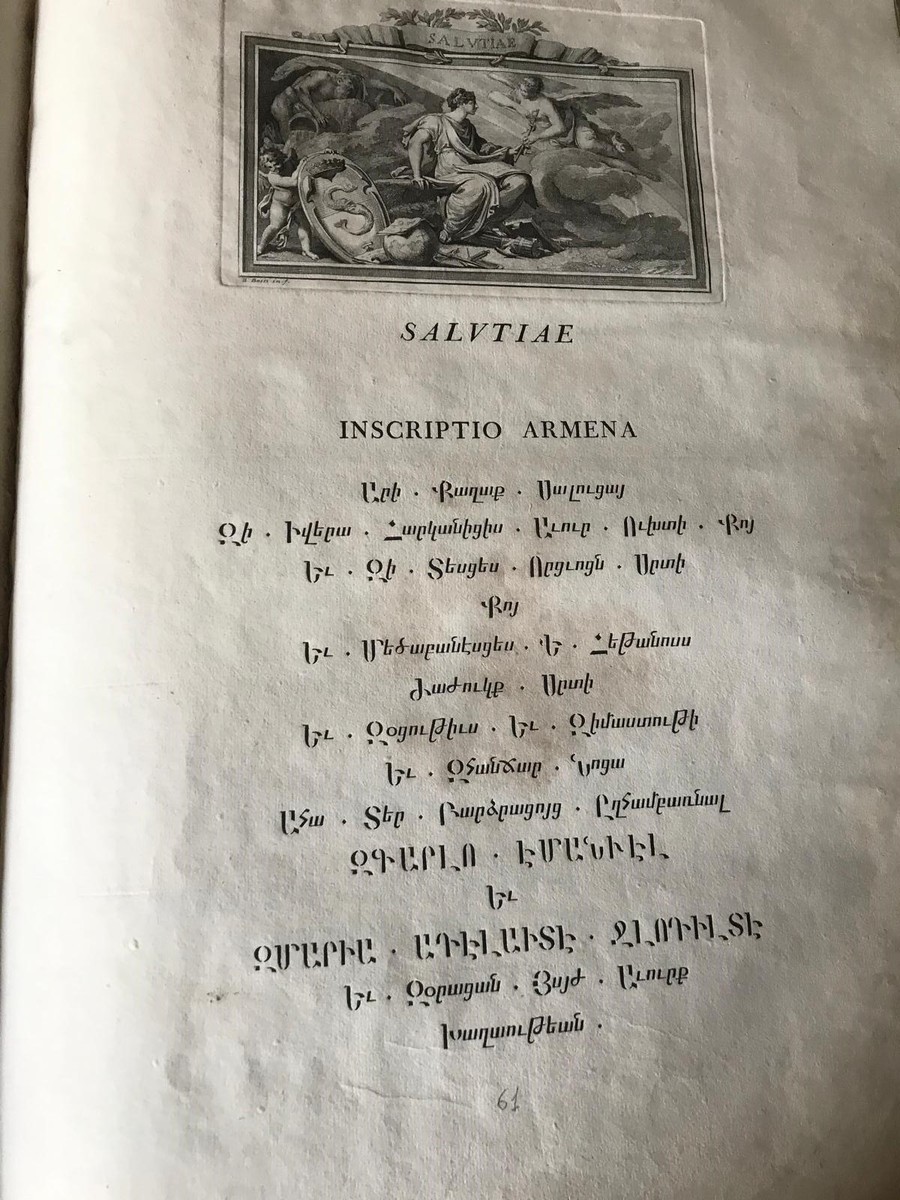 SALVTIAE
SALVTIAE
INSCRIPTIO ARMENA
Արի · Քաղաք · Սալուցայ
Զի · Իվերա · Հարկանիցիս · Աւուր · Ուխտի · Քոյ
Եւ · Զի · Տեսցես · Որցւոցն · Սրտի
Քոյ
Եւ · Մեծաբանէսցես · Ի · Հեթանոսս
Ժաժուկք · Սրտի
Եւ · Զօցութիւս · Եւ · Զիմաստութի
Եւ · Զհանճար · Նոցա
Ահա · Տեր · Բարձրացոյց · Ըղհամբառնալ
ԶԳԱՐԼՈ · ԷՄԱՆԻԷԼ
Եւ
ԶՄԱՐԻԱ · ԱԴԷԼԱԻՏԷ · ՋԼՈԴԻԼՏԷ
Եւ · Զօրացան · Յայժ · Աւուրք
Խաղաւութեան ·
61